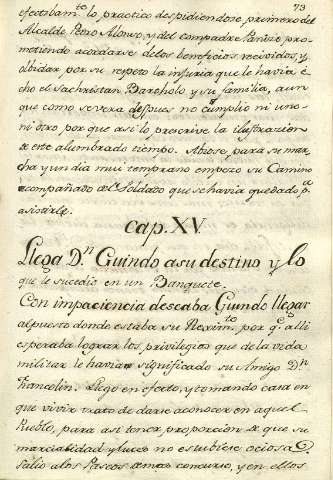 73
efectibam.te lo practicó despidiendose primero del
Alcalde Pedro Alonso, y del compadre Panizo, pro-
metiendo acordarse de los beneficios recividos, y
olbidar por su respeto la injuria que le havia e-
cho el Sachristan Bartholo y su familia, aun
que como se vera despues no cumplio ni uno
ni otro por que asi lo prescrive la ilustrazion
de este alumbrado tiempo. Abiose para su mar-
cha y un dia mui temprano empezo su Camino
acompañado del Soldado que se havia quedado p.a
asistirle.
Cap. XV.
Llega D.n Guindo a su destino y lo
que le sucedio en un Banquete.
Con impaciencia deseaba Guindo llegar
al puesto donde estaba su Rexim.to por q.e alli
esperaba lograr los privilegios que de la vida
militar le havia significado su Amigo D.n
Francolin. Llegó en efecto, y tomando casa en
que vivir trato de darse a conocer en aquel
Pueblo, para asi tener proporcion de que su
marcialidad y luces no estubiese ociosa.
Salio a los Paseos de mas concurso, y en ellos